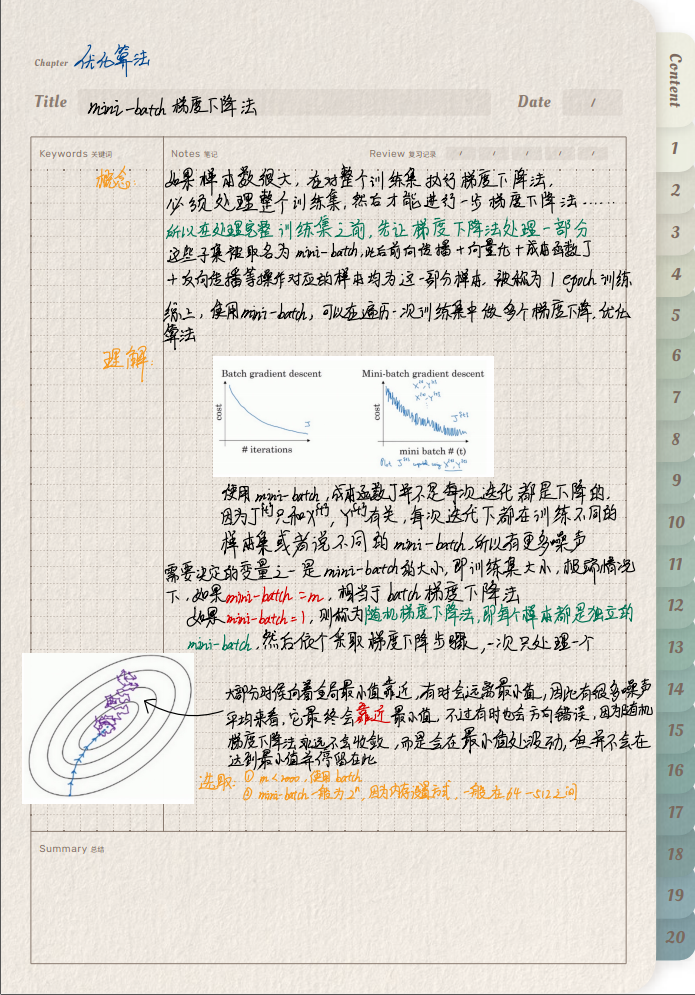 Chapter 优化算法
Title mini-batch 梯度下降法 Date /
Keywords 关键词 Notes 笔记 Review 复习记录 / / / / /
概念:
如果样本数很大，在对整个训练集执行梯度下降法，
必须处理整个训练集，然后才能进行一步梯度下降法……
所以在处理完整训练集之前，先让梯度下降法处理一部分
这些子集被取名为 mini-batch，此后前向传播+向量化+成本函数J
+反向传播等操作对应的样本均为这一部分样本，被称为1 epoch训练
综上，使用mini-batch，可以在遍历一次训练集中做多个梯度下降，优化
算法
理解:
Batch gradient descent
cost
J
# iterations
Mini-batch gradient descent
cost
mini batch # (t)
使用mini-batch，成本函数J并不是每次迭代都是下降的.
因为J^{t}只和X^{t}，Y^{t}有关，每次迭代下都在训练不同的
样本集或者说不同的mini-batch，所以有更多噪声
需要决定的变量之一是mini-batch的大小，即训练集大小，极端情况
下，如果mini-batch=m，相当于batch梯度下降法
如果mini-batch=1，则称为随机梯度下降法，即每个样本都是独立的
mini-batch，然后依个采取梯度下降步骤，一次只处理一个
大部分时候向着全局最小值靠近，有时会远离最小值，因此有很多噪声
平均来看，它最终会靠近最小值，不过有时也会方向错误，因为随机
梯度下降法永远不会收敛，而是会在最小值处波动，但并不会在
达到最小值并停留在此
选取: ① m<2000，使用batch
② mini-batch一般为2^n，因为内存设置方式，一般在64-512之间
Summary 总结
Content
1
2
3
4
5
6
7
8
9
10
11
12
13
14
15
16
17
18
19
20